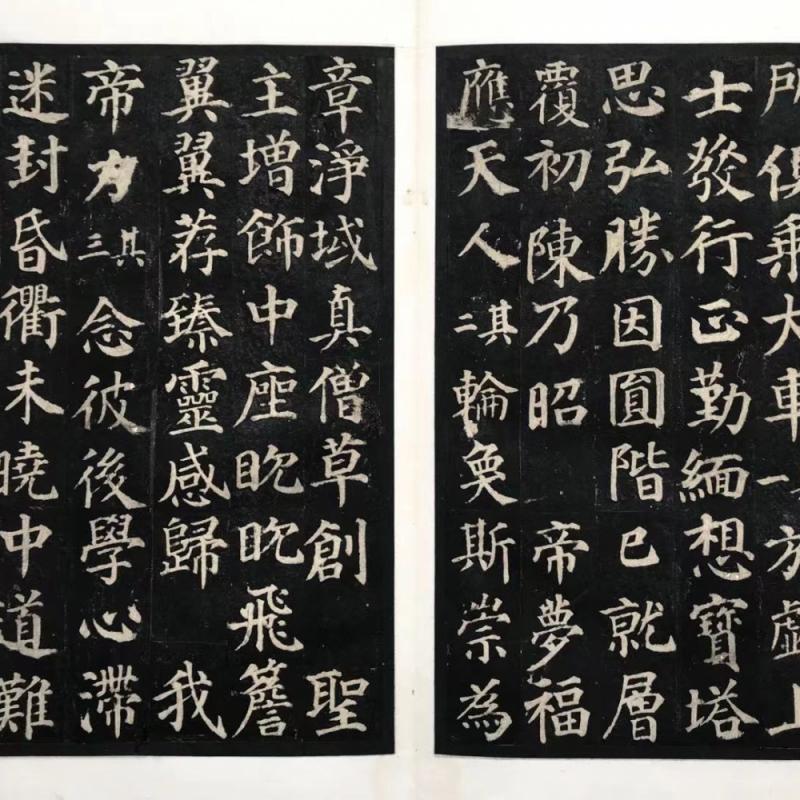 所俱乘大車其一於戲上
士發行正勤緬想寶塔
思弘勝因圎階已就層
覆初陳乃昭帝夢福
應天人其二輪奐斯崇為
章淨域真僧草創聖
主增飾中座眈眈飛簷
翼翼荐臻靈感歸我
帝力其三念彼後學心滯
迷封昏衢未曉中道難